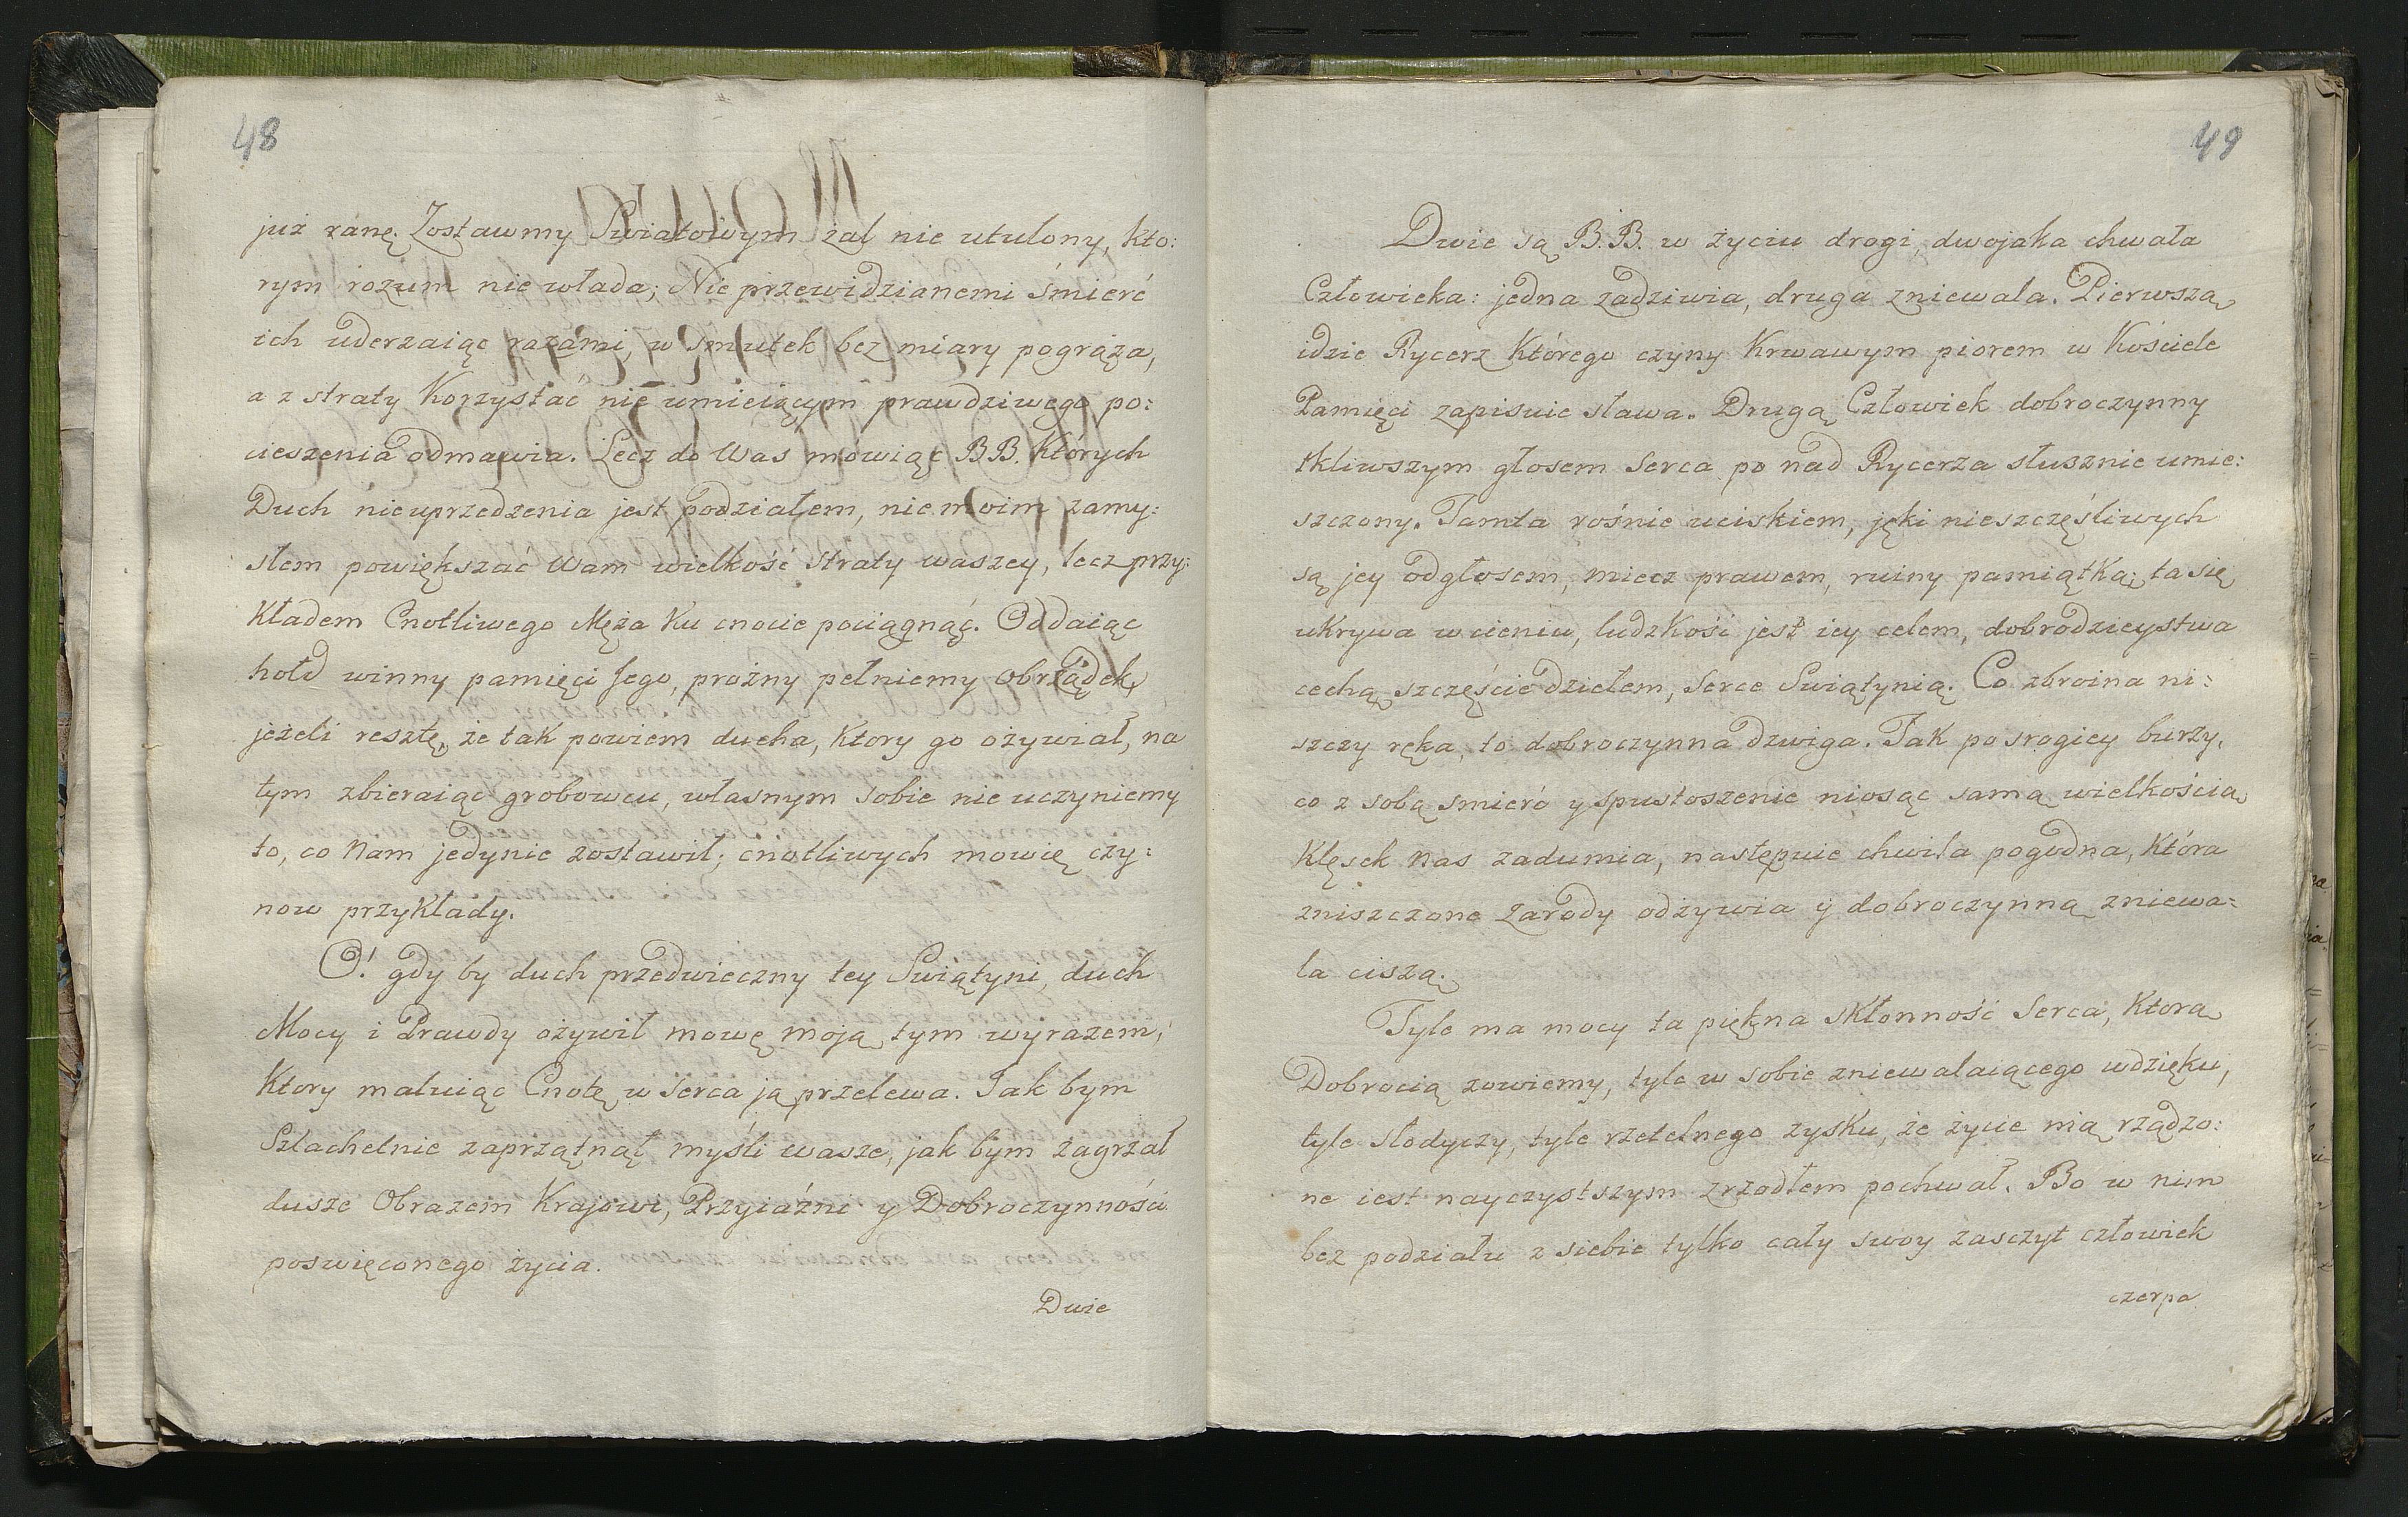 48
już ranę. Zostawmy Swiatowym żal nie utulony, kto:
rym rozum nie włada; Nie przewidzianemi śmierć
ich uderzaiąc razámi, w smutek bez miary pogrąża,
a z straty Korzystać nie umieiącym prawdziwego po:
cieszenia odmawia. Lecz do Was mówiąc B B. Których
Duch nieuprzedzenia jest podziałem, nie moim zamy:
słem powiększać Wam wielkość straty waszey, lecz przy:
Kładem Cnotliwego Męża Ku cnocie pociągnąć. Oddaiąc
hołd winny pamięci Jego, prożny pełniemy obrządek,
jeżeli resztę, że tak powiem ducha, Ktory go ożywiał, na
tym zbieraiąc grobowcu, własnym sobie nie uczyniemy
to, co Nam jedynie zostawił; cnotliwych mowię czy:
now przykłady.
O! gdy by duch przedwieczny tey Swiątyni, duch
Mocy i Prawdy ożywił mowę moją tym wyrazem,
Ktory maluiąc Cnotę w serca ją przelewa. Jak bym
Szlachetnie zaprzątnął myśli wasze, jak bym zagrzał
dusze Obrazem Krajowi, Przyiaźni y Dobroczynności
poswięconego życia.
Dwie
49
Dwie są B.B. w życiu drogi, dwojaka chwała
Człowieka: jedna zadziwia, druga zniewala. Pierwszą
idzie Rycerz Którego czyny Krwawym piorem w Kościele
Pamięci zapisuie sława. Drugą Człowiek dobroczynny
tkliwszym głosem serca po nad Rycerza słusznie umie:
szczony. Tamta rośnie uciskiem, jęki nieszczęśliwych
są jey odgłosem, miecz prawem, ruiny pamiątką; ta się
ukrywa w cieniu, ludzkość jest iey celem, dobrodzieystwa
cechą, szczęście dziełem, serce Swiątynią. Co zbroina ni:
szczy ręka, to dobroczynna dzwiga. Tak po srogiey burzy,
co z sobą smierć y spustoszenie niosąc samą wielkością
Klęsek nas zadumia, następuie chwila pogodna, Która
zniszczone zarody odżywia ÿ dobroczynną zniewa:
la ciszą.
Tyle ma mocy ta piękna skłonność serca, Ktorą
Dobrocią zowiemy, tyle w sobie zniewalaiącego wdzięku,
tyle słodyczy, tyle rzetelnego zysku, że życie nią rządzo:
ne iest nayczystszym zrzodłem pochwał. Bo w nim
bez podziału z siebie tylko cały swoy zasczyt człowiek
czerpa